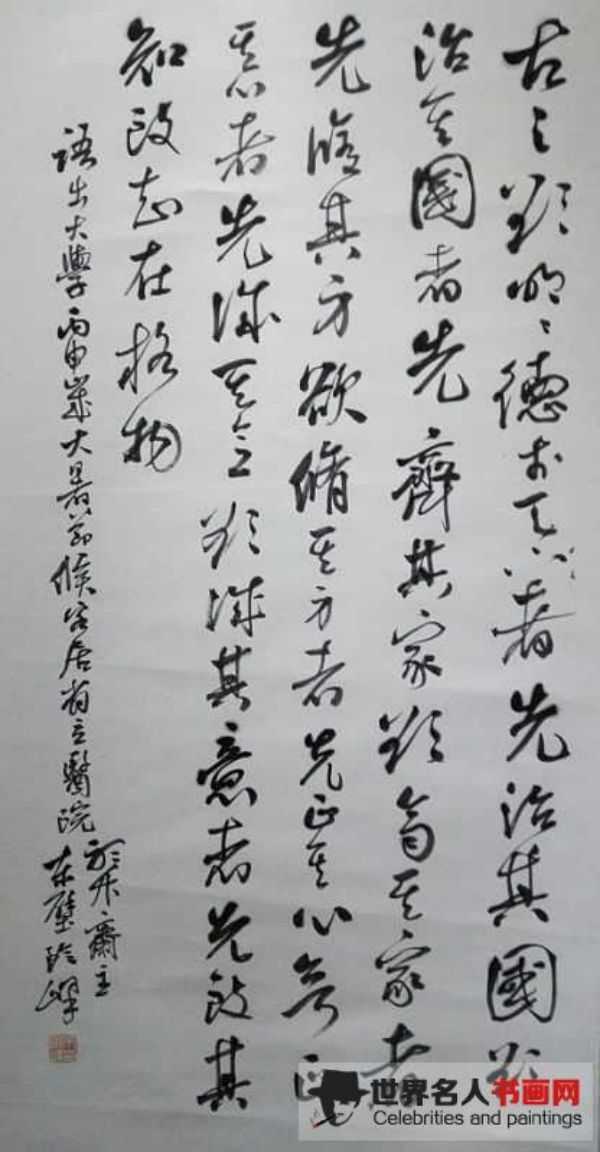 古之欲明〻德於天下者先治其國欲
治其國者先齊其家欲齊其家者
先脩其身欲脩其身者先正其心欲正
其心者先誠其意欲誠其意者先致其
知致知在格物
語出大學丙申歲大暑節候客居省立醫院
齋主
世界名人书画网
Celebrities and paintings